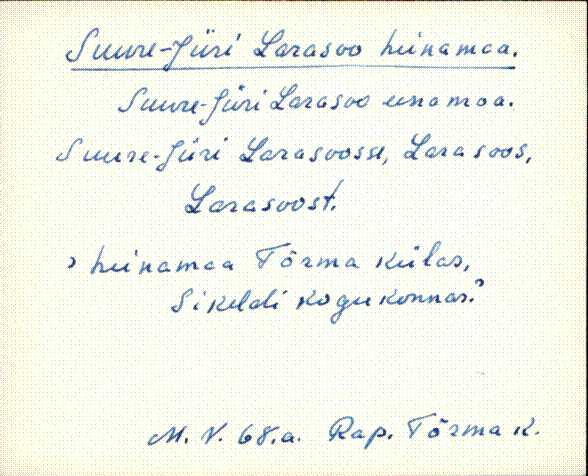 Suure-Jüri Larasoo heinamaa.
Suure-Jüri Larasoo einamaa.
Suure-Jüri Larasoosse, Larasoos,
Larasoost.
heinamaa Tõrma külas,
Sikeldi kogukonnas.
M. V. 68.a. Rap. Tõrma k.